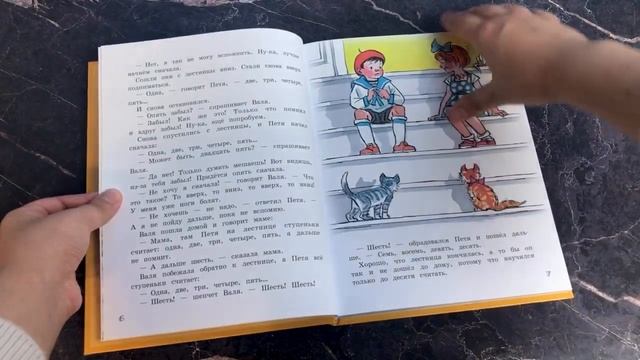 — Нет, я так не могу вспомнить. Ну-ка, лучше
начнём сначала.
Сошли они с лестницы вниз. Стали снова вверх
подниматься.
— Одна, — говорит Петя, — две, три, четыре,
пять...
И снова остановился.
— Опять забыл? — спрашивает Валя.
— Забыл! Как же это! Только что помнил
и вдруг забыл! Ну-ка, ещё попробуем.
Снова спустились с лестницы, и Петя начал
сначала:
— Одна, две, три, четыре, пять...
— Может быть, двадцать пять? — спрашивает
Валя.
— Да нет! Только думать мешаешь! Вот видишь,
из-за тебя забыл! Придётся опять сначала.
— Не хочу я сначала! — говорит Валя. — Что
это такое? То вверх, то вниз, то вверх, то вниз!
У меня уже ноги болят.
— Не хочешь — не надо, — ответил Петя. —
А я не пойду дальше, пока не вспомню.
Валя пошла домой и говорит маме:
— Мама, там Петя на лестнице ступеньки
считает: одна, две, три, четыре, пять, а дальше
не помнит.
— А дальше шесть, — сказала мама.
Валя побежала обратно к лестнице, а Петя всё
ступеньки считает:
— Одна, две, три, четыре, пять...
— Шесть! — шепчет Валя. — Шесть! Шесть!
6
— Шесть! — обрадовался Петя и пошёл даль-
ше. — Семь, восемь, девять, десять.
Хорошо, что лестница кончилась, а то бы он
так и не дошёл до дому, потому что научился
только до десяти считать.
7